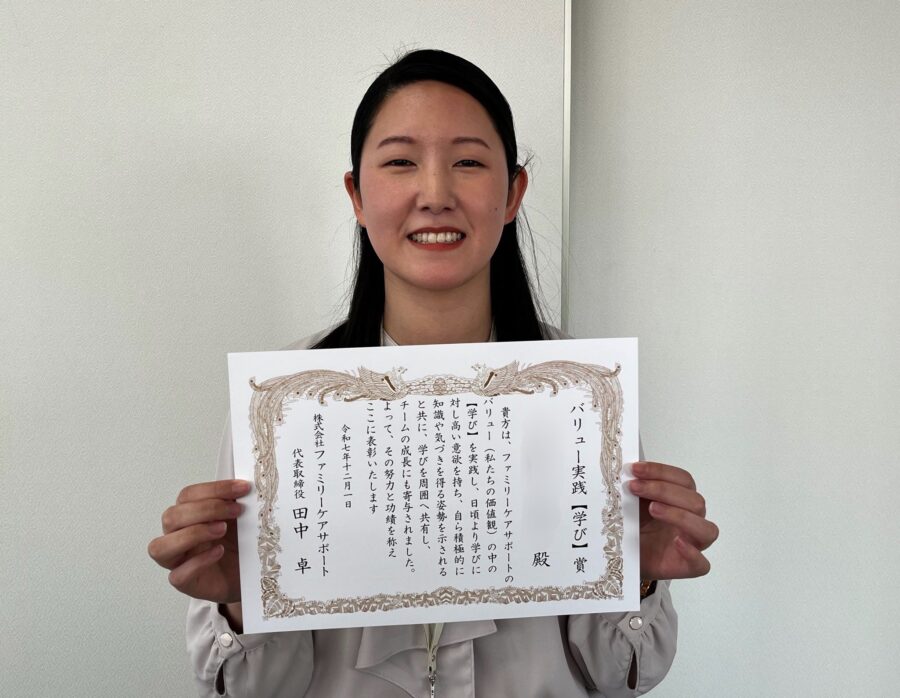 バリュー実践【学び】賞
殿
貴方は、ファミリーケアサポートの
バリュー（私たちの価値観）の中の
【学び】を実践し、日頃より学びに
対し高い意欲を持ち、自ら積極的に
知識や気づきを得る姿勢を示される
と共に、学びを周囲へ共有し、
チームの成長にも寄与されました。
よって、その努力と功績を称え
ここに表彰いたします
令和七年十二月一日
株式会社ファミリーケアサポート
代表取締役 田中 卓